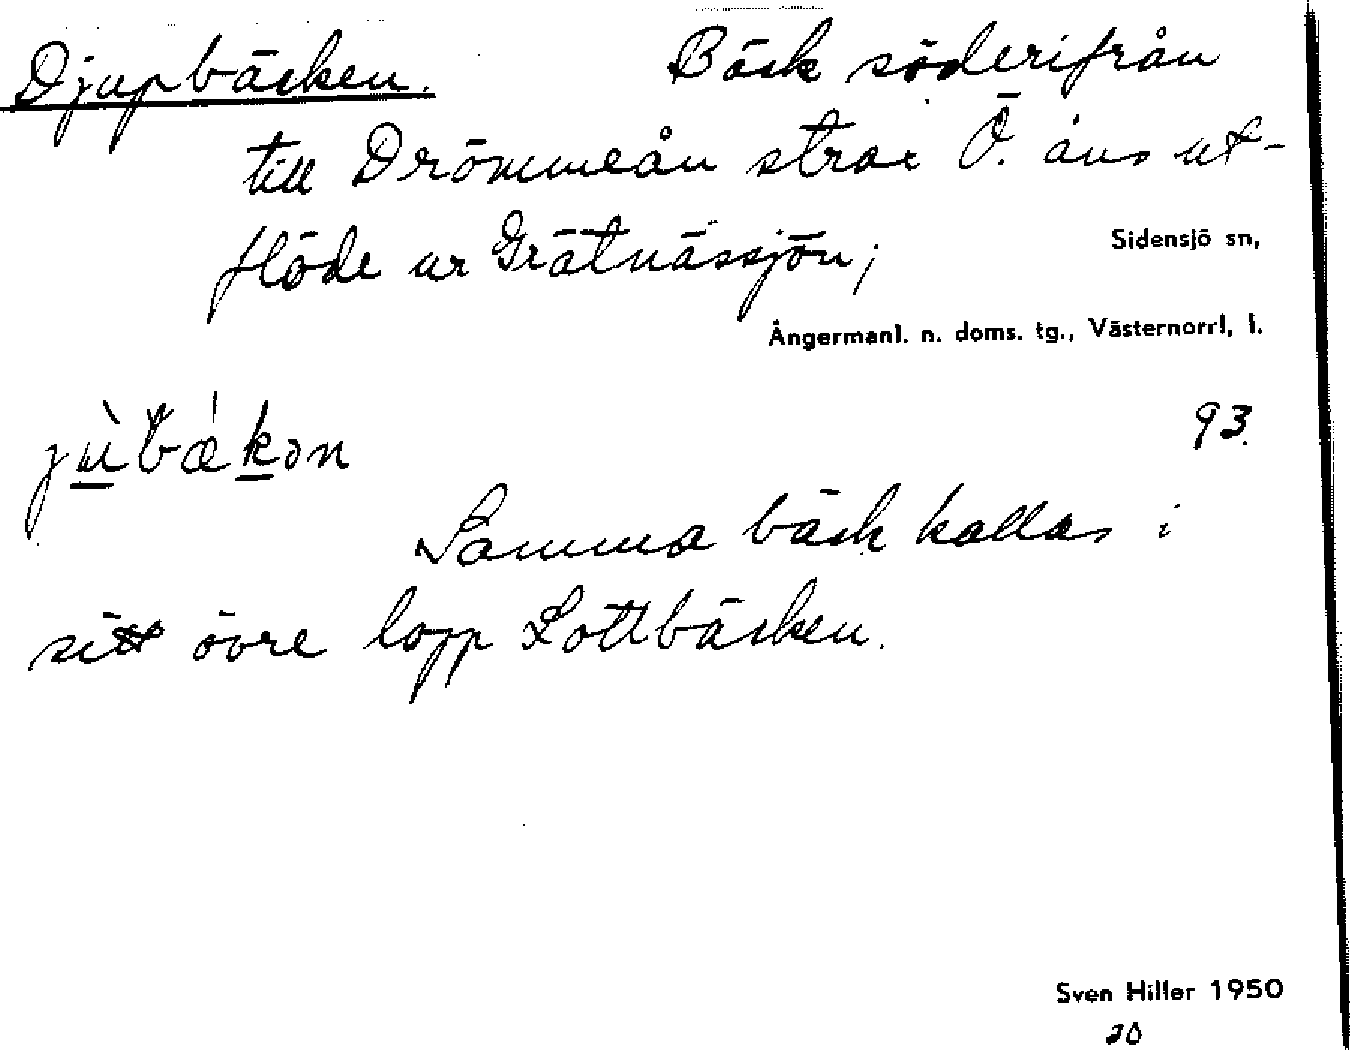 Djupbäcken. Bäck söderifrån
till Drömmeån strax Ö. åns ut-
flöde ur Grätnässjön;
Sidensjö sn,
Ångermanl. n. doms. tg., Västernorrl. l.
93.
Samma bäck kallas i
sitt övre lopp Lottbäcken.
Sven Hiller 1950
20